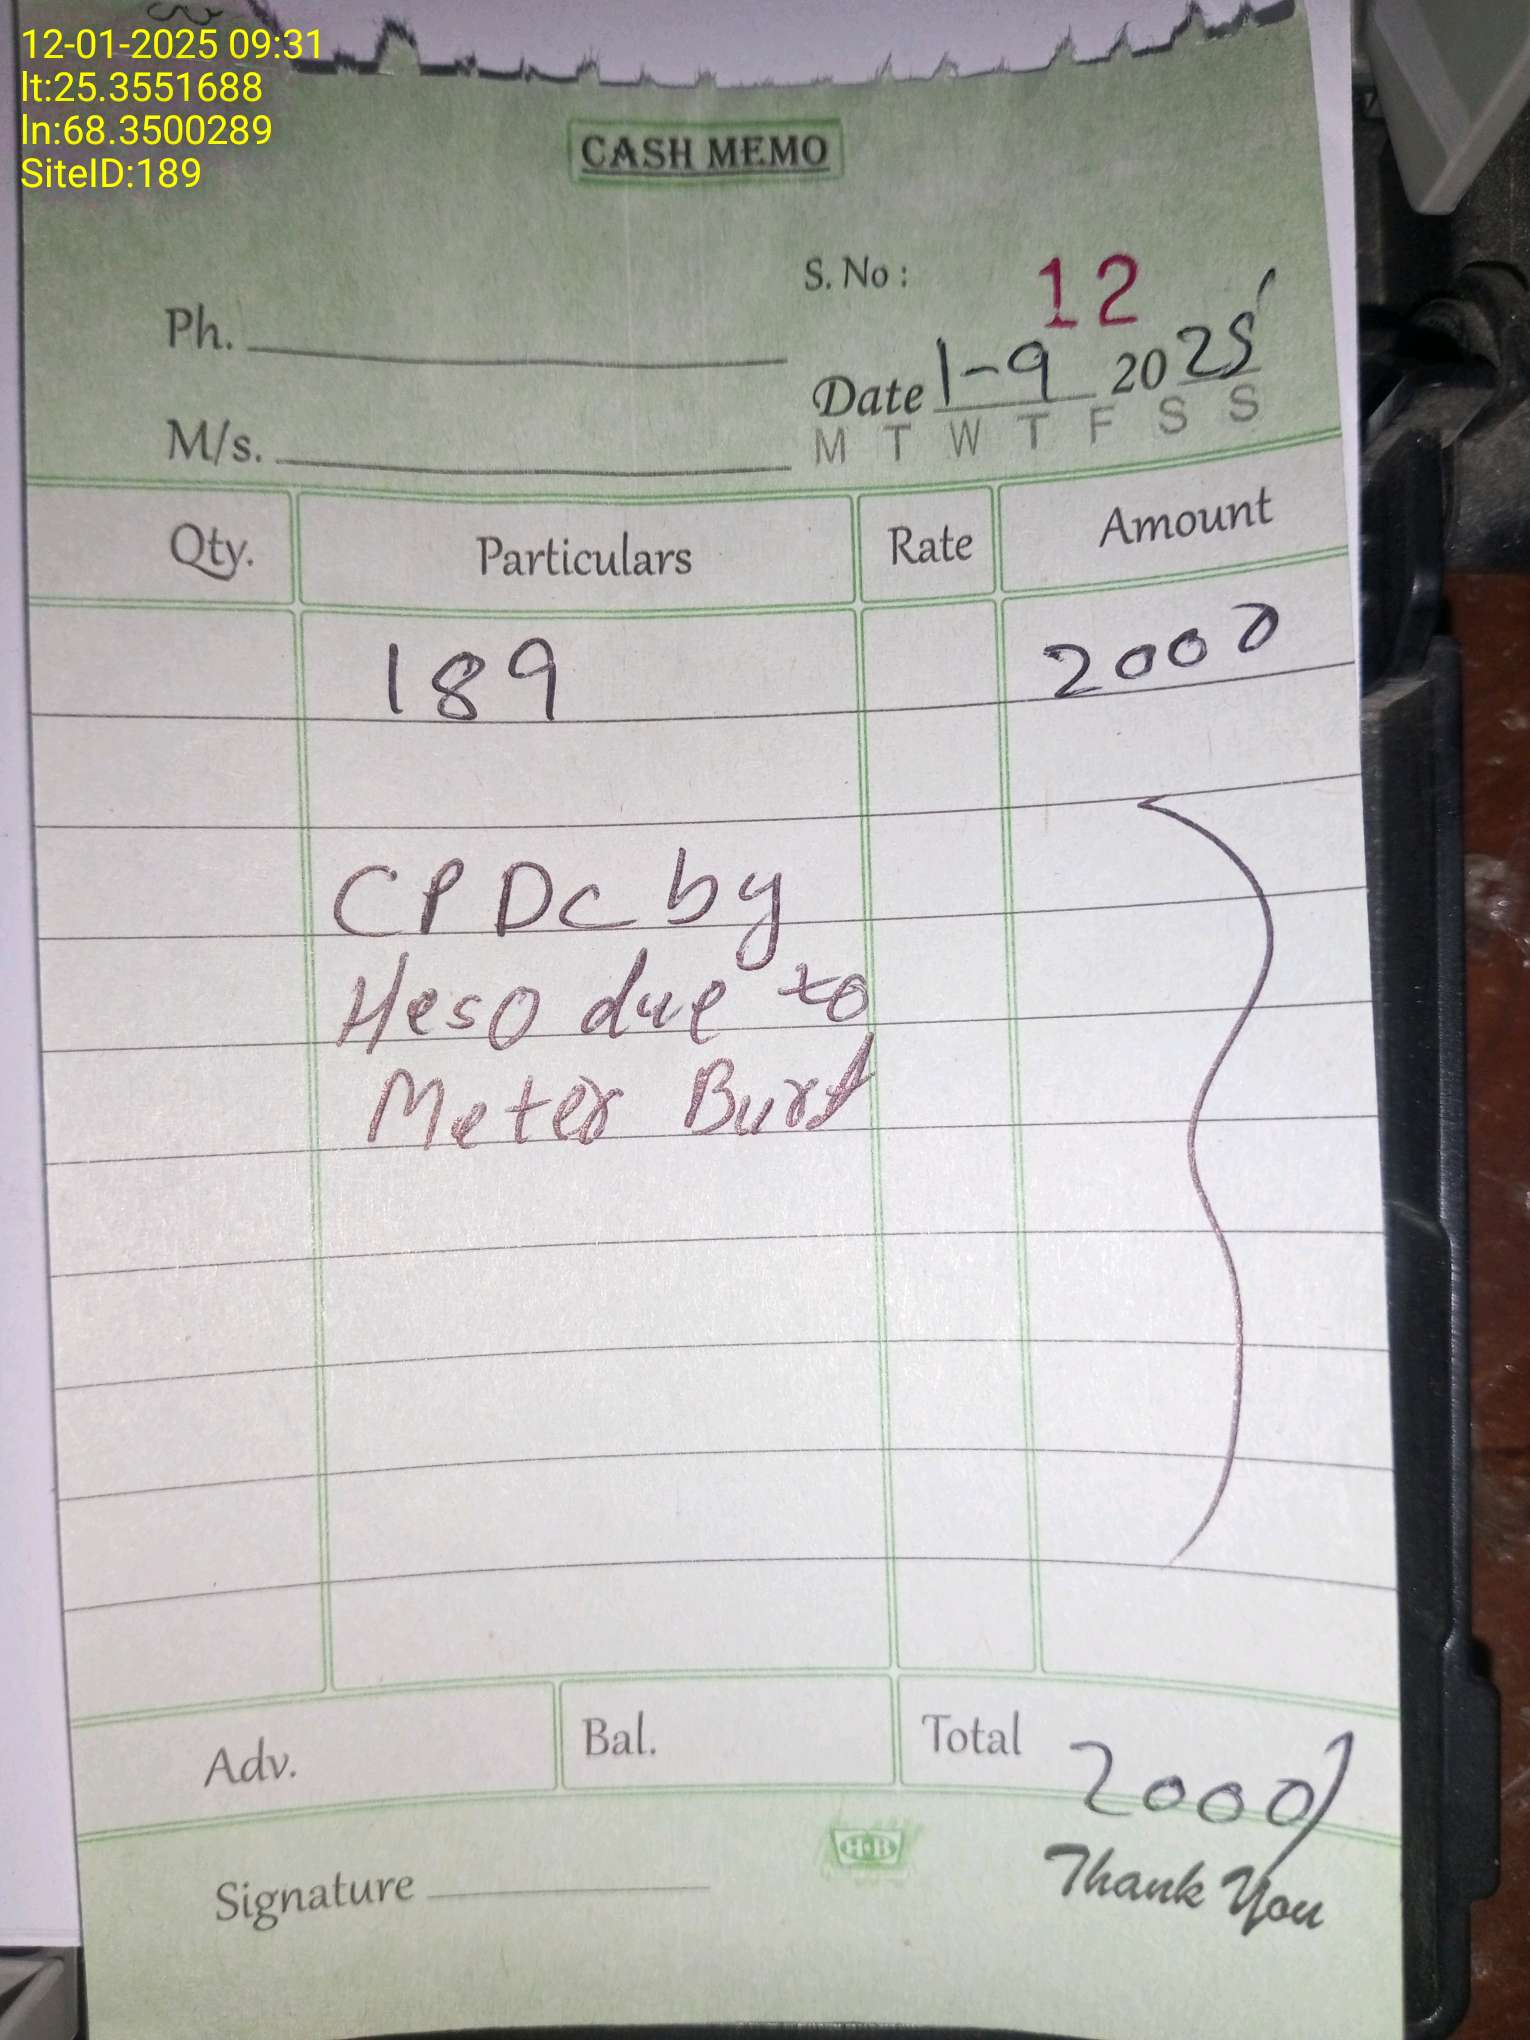 12-01-2025 09:31
lt:25.3551688
ln:68.3500289
SiteID:189
CASH MEMO
S. No : 12
Ph.
Date 1-9 2025
M/s.
M T W T F S S
Qty. Particulars Rate Amount
189 2000
CP DC by
Heso due to
Meter Burst
Adv. Bal. Total 2000/
H·B
Signature
Thank You